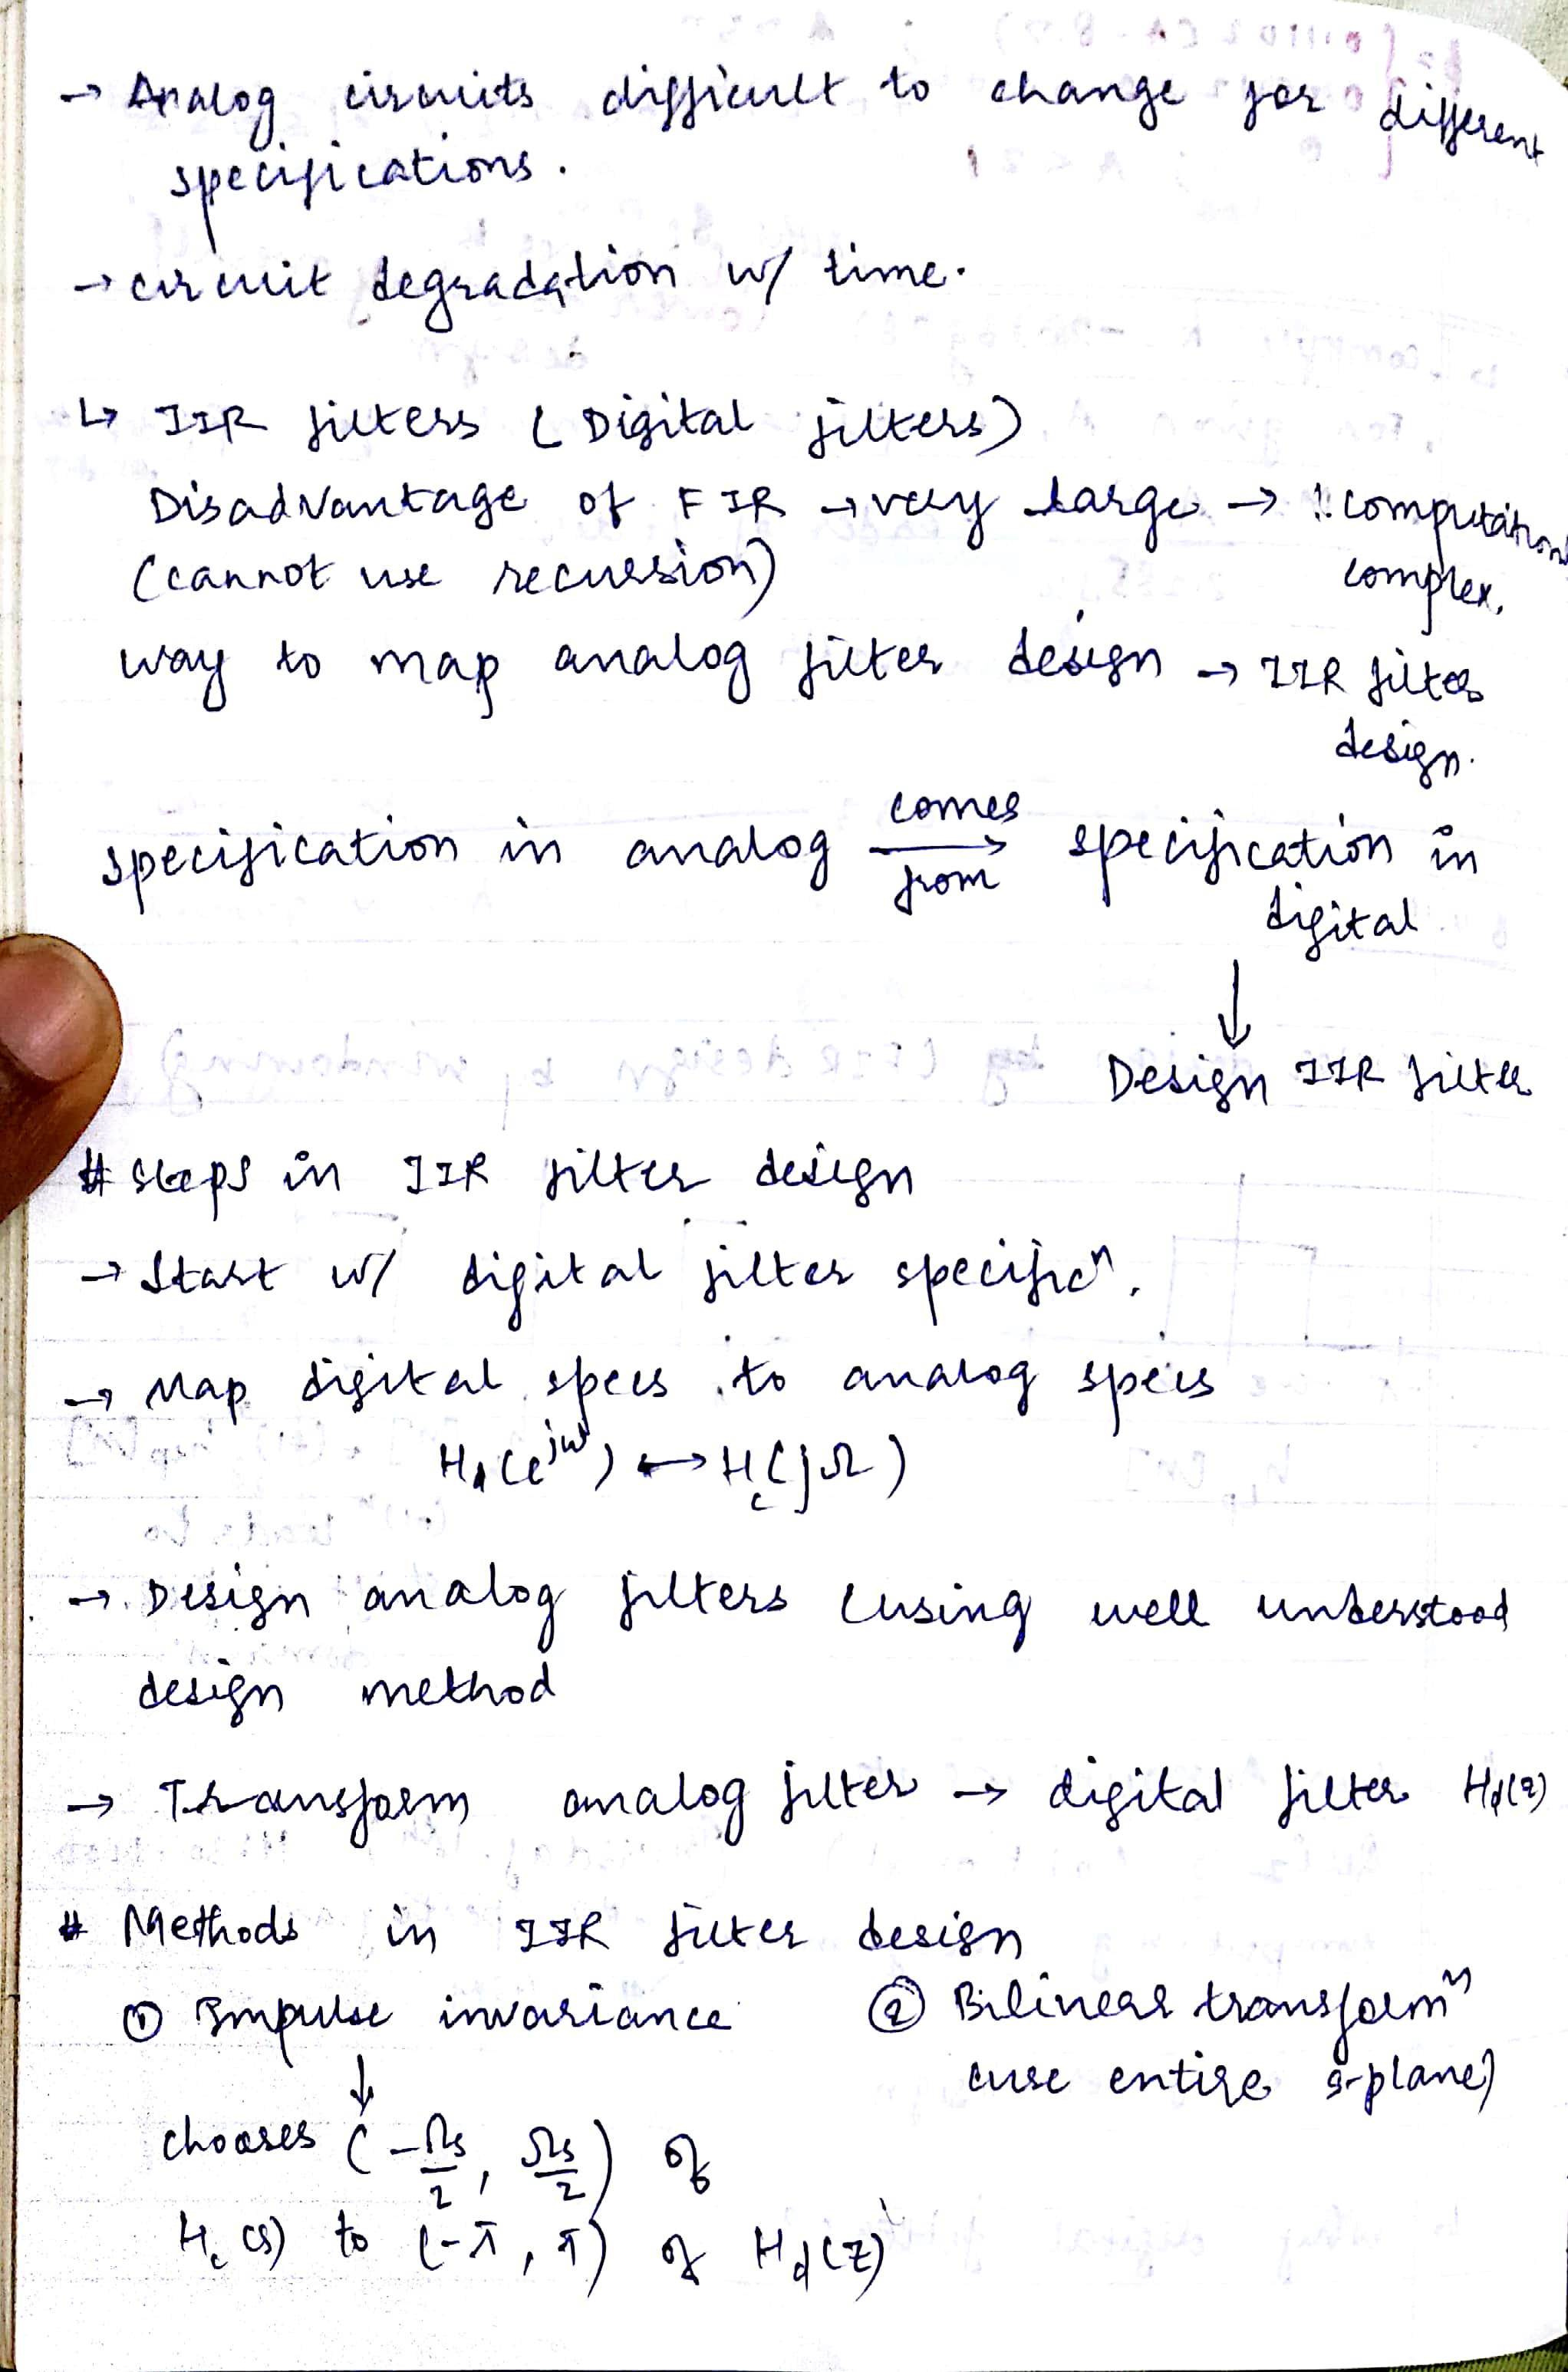 → Analog circuits difficult to change for different
specifications.
→ circuit degradation w/ time.
↳ IIR filters (Digital filters)
Disadvantage of FIR → very large → computation
(cannot use recursion) complex.
way to map analog filter design → IIR filter
design.
specification in analog comes from → specification in
digital
↓
Design IIR filter
# Steps in IIR filter design
→ Start w/ digital filter specificⁿ.
→ Map digital specs to analog specs
H_d(e^{jω}) ↔ H_c(jΩ)
→ Design analog filters (using well understood
design method
→ Transform analog filter → digital filter H_d(z)
# Methods in IIR filter design
① Impulse invariance ② Bilinear transformⁿ
↓ (use entire s-plane)
chooses (-Ωs/2, Ωs/2) of
H_c(s) to (-π, π) of H_d(z)